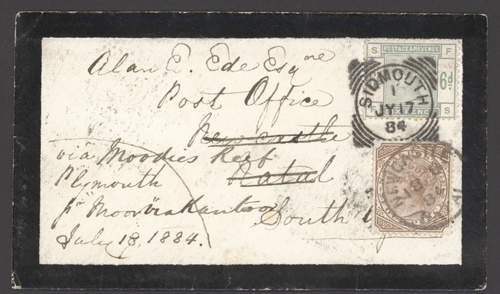 Alan E. Ede Esqre
Post Office
Newcastle
via Moodies Reef
Natal
Plymouth
South
July 18. 1884.
POSTAGE & REVENUE
S F
6d
S
SIDMOUTH
1
JY 17
84
NEWCASTLE